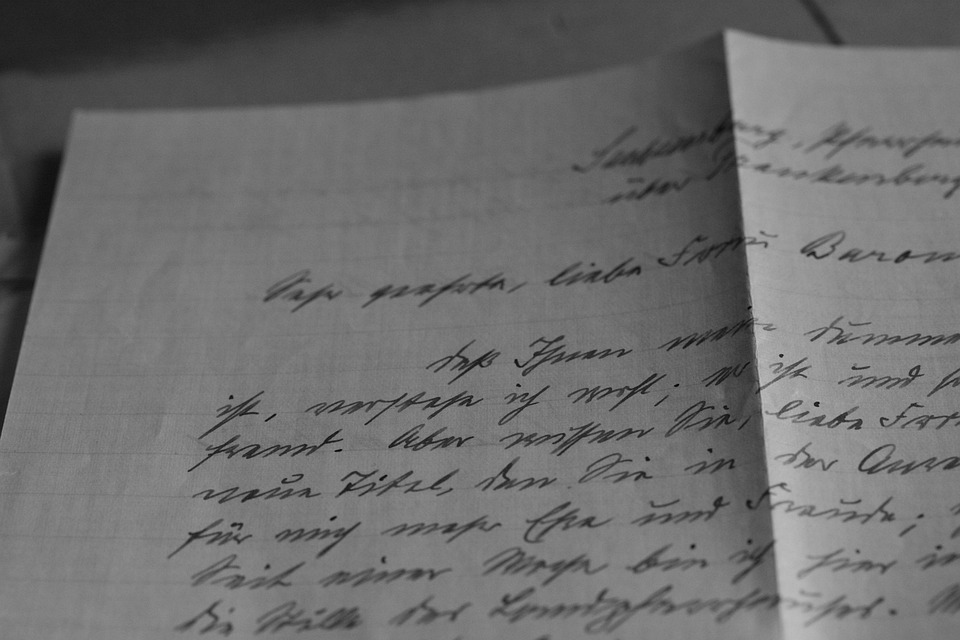 über Frankenberg
Sehr geehrte, liebe Frau Baron
daß Ihnen mein dumme
ist, verstehe ich wohl; er ist und
fremd. Aber wissen Sie, liebe Frau
neue Titel, den Sie in der
für mich mehr Ehe und Freude;
Seit einer Woche bin ich hier in
die Stille des Landpfarrhauses.